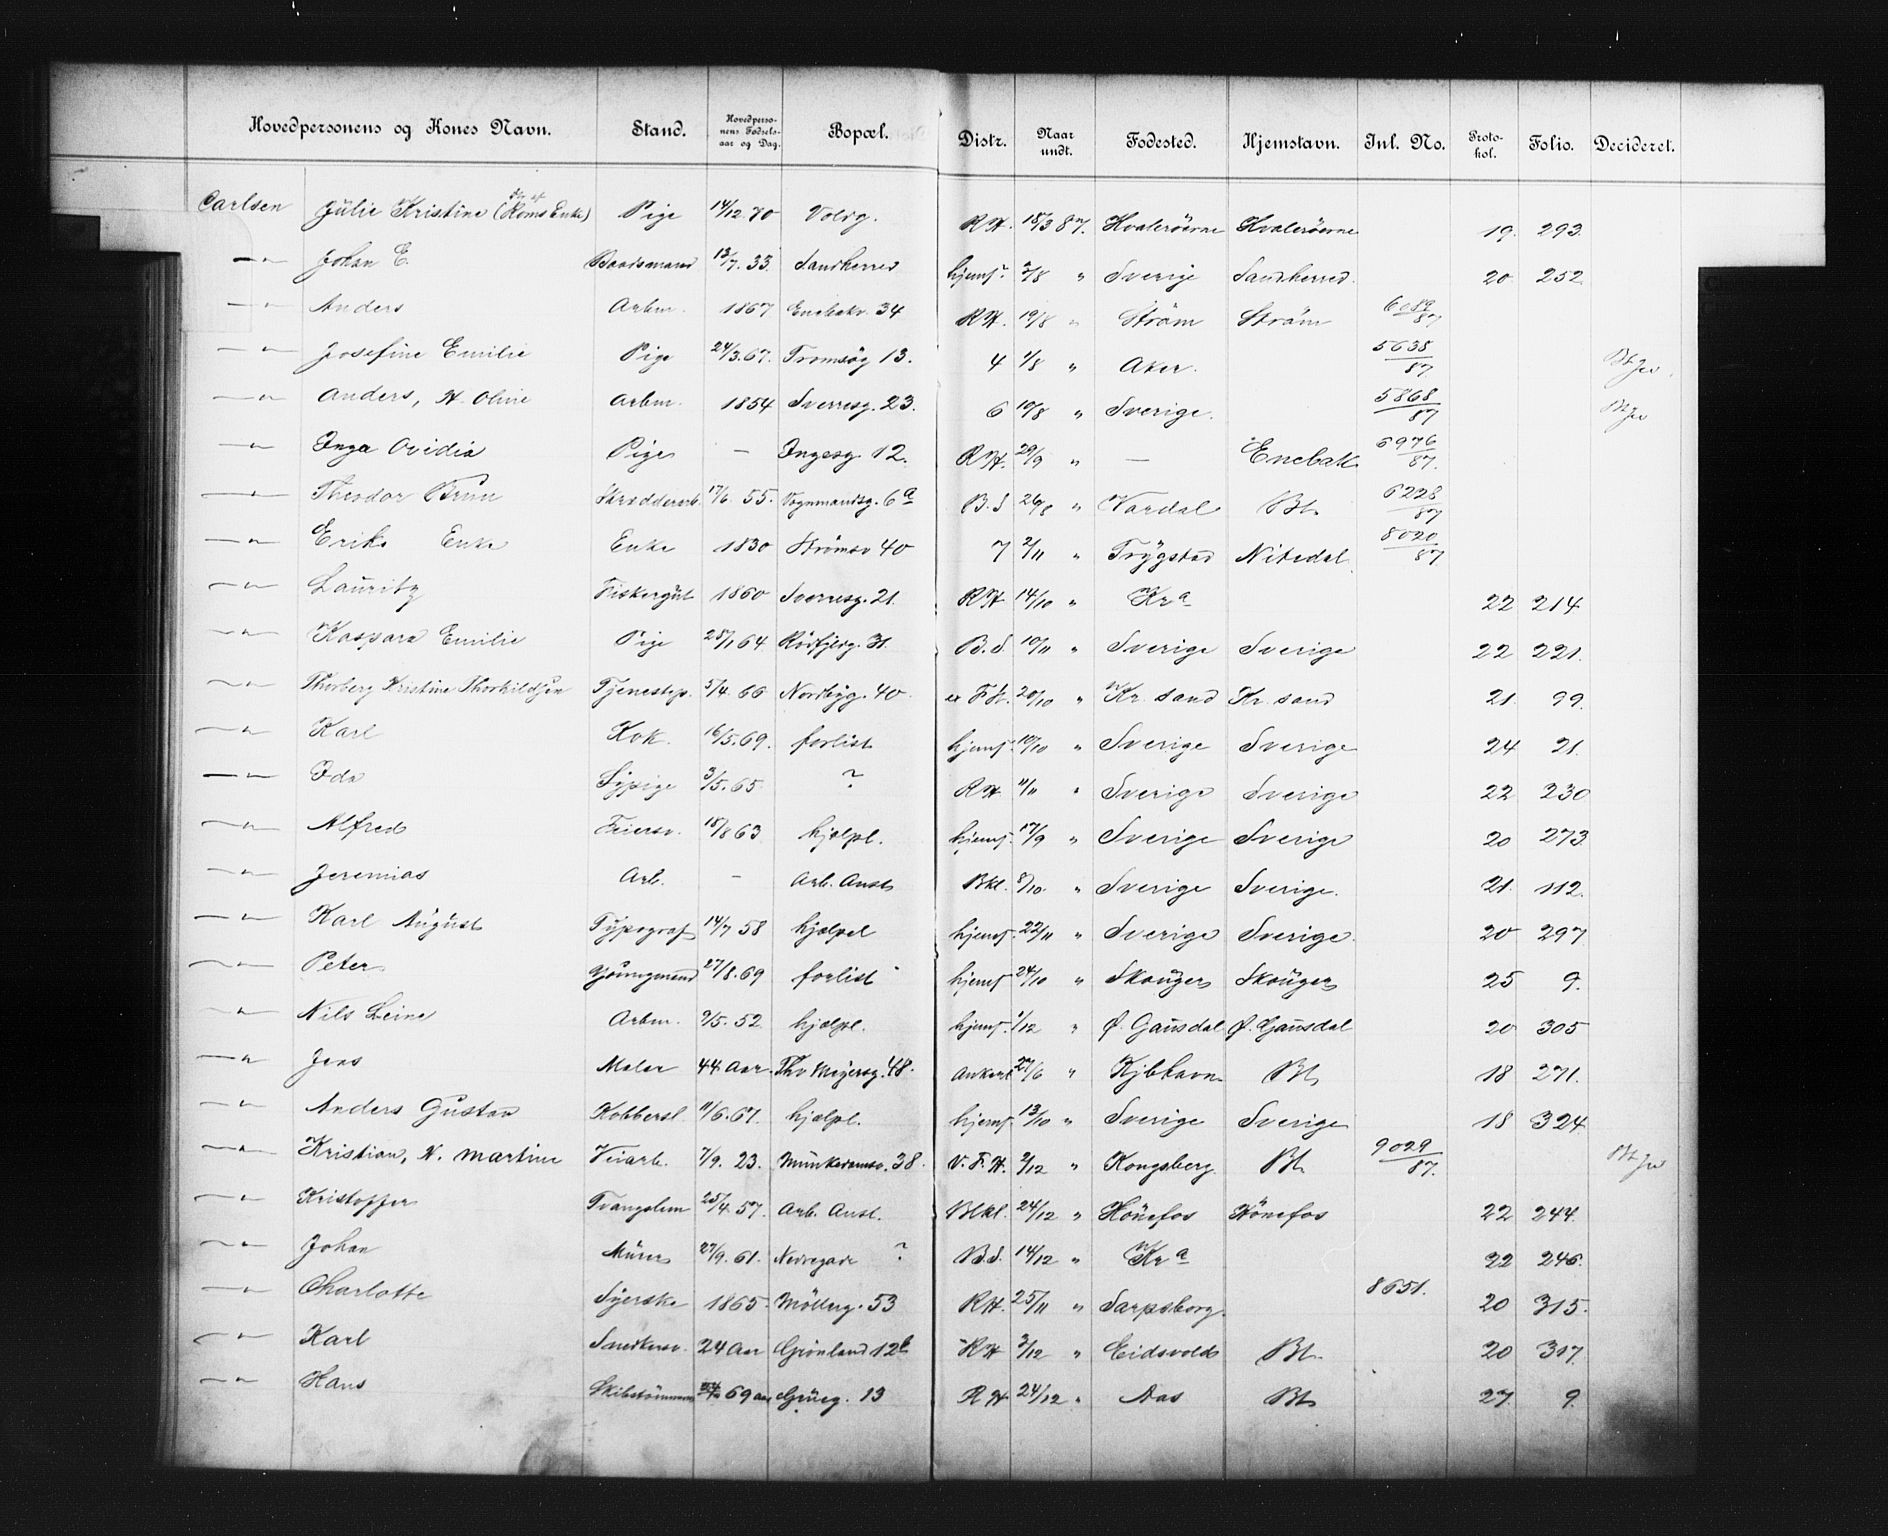 Hovedpersonens og Kones Navn. Stand. Hovedpersonens Fødselsaar og Dag. Bopæl. Distr. Naar undt. Fødested. Hjemstavn. Inl. No. Protokol. Folio. Decideret.
Carlsen Julie Kristine (Roms Enke) Pige 14/12.70 Voldg. R.H. 18/3 87. Hvaleröerne Hvaleröerne 19. 293.
—"— Johan E. Baadsmand 13/7.33. Sandherred hjemf. 2/8 " Sverige Sandherred. 20 252
—"— Anders Arbm. 1867 Enebakv. 34 R.H. 19/8 " Ström Ström 6089/87
—"— Josefine Emilie Pige 24/3.67. Tromsög 13. 4 1/8 " Aker. 5638/87
—"— Anders, H. Oline Arbm. 1854 Sverresg. 23. 6 10/8 " Sverige. 5868/87
—"— Inga Ovidia Pige — Ingesg. 12. R.H. 29/9 " — Enebak 6976/87.
—"— Theodor Brun Skræddersv. 17/6. 55. Vognmandsg. 6a B.S 26/8 " Vardal Bl. 6228/87
—"— Eriks Enke Enke 1830 Strömsv 40 7 2/11 " Trygstad Nitedal. 8020/87
—"— Lauritz Fiskergut 1860 Sverresg. 21. R.H 14/10 " Kra 22 214
—"— Kaspara Emilie Pige 28/1 64 Rödfjeldg. 31. B.S. 10/11 " Sverige Sverige 22 221.
—"— Thorberg Kristine Thorkildsen Tjenestep. 5/4. 66 Nordbyg. 40. 20/10 " Kr. sand Kr. sand 21. 99.
—"— Karl Kok. 16/5.69. forlist hjemf. 10/10 " Sverige Sverige 24 21.
—"— Ida Sypige 3/5.65. ? R.H. 11/11 " Sverige Sverige 22 230
—"— Alfred Feiersv. 18/8 63 hjælpl. hjemf. 17/9 " Sverige Sverige 20 273
—"— Jeremias Arb. — Arb. Anst. Bkl. 8/10. " Sverige Sverige. 21. 112.
—"— Karl August Typograf 14/7 58 hjælpel hjemf. 22/11 " Sverige Sverige. 20 297
—"— Peter Youngmand 27/8.69 forlist hjemf 24/10 " Skouger Skouger 25 9.
—"— Nils Leine Arbm. 9/5. 52 hjælpl. hjemf. 1/12 " Ö. Gausdal Ö. Gausdal 20 305
—"— Jens Maler 44 Aar. Thv Meyersg. 48. Ankerl. 27/6 " Kjbhavn Bl. 18 271.
—"— Anders Gustav Kobbersl. 11/6.67. hjælpl. hjemf. 13/10 " Sverige Sverige 18 324
—"— Kristian, H. Martine Veiarb. 7/9. 23. Munkedamsv. 38. V.F.H. 2/12 " Kongsberg Bl. 9029/87.
—"— Kristoffer Tvangslem 25/4.57. Arb. Anst. Blkl. 24/12 " Hönefos Hönefos 22 244.
—"— Johan Murer 27/9. 61. Nedregade ? B.S. 14/12 " Kra 22 246.
—"— Charlotte Syerske 1865. Möllerg. 53 R.H. 25/11 " Sarpsborg. 8651. 20 315.
—"— Karl Snedkersv. 24 Aar Grönland 12b R.H 3/12 " Eidsvold Bl. 20 307.
—"— Hans Skibstömmerm 69 aar Grüeg. 13 R.H 24/12 " Aas Bl. 27. 9.